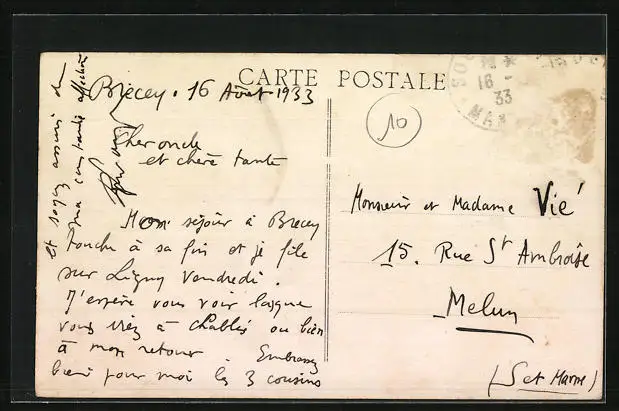 CARTE POSTALE
Brécey. 16 Août 1933
Cher oncle
et chère tante
Mon séjour à Brécey
touche à sa fin et je file
sur Ligny vendredi.
J'espère vous voir lorsque
vous irez à Chablis ou bien
à mon retour. Embrassez
bien pour moi les 3 cousins
et soyez assurés de
ma constante affection
10
16 -
33
MAN
Monsieur et Madame Vié
15. Rue St Ambroise
Melun
(S et Marne)